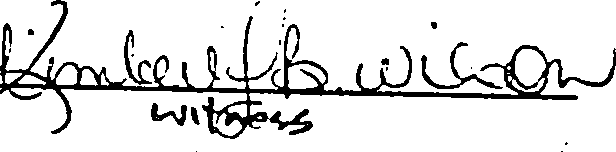 Kimberly B. Wilson
witness